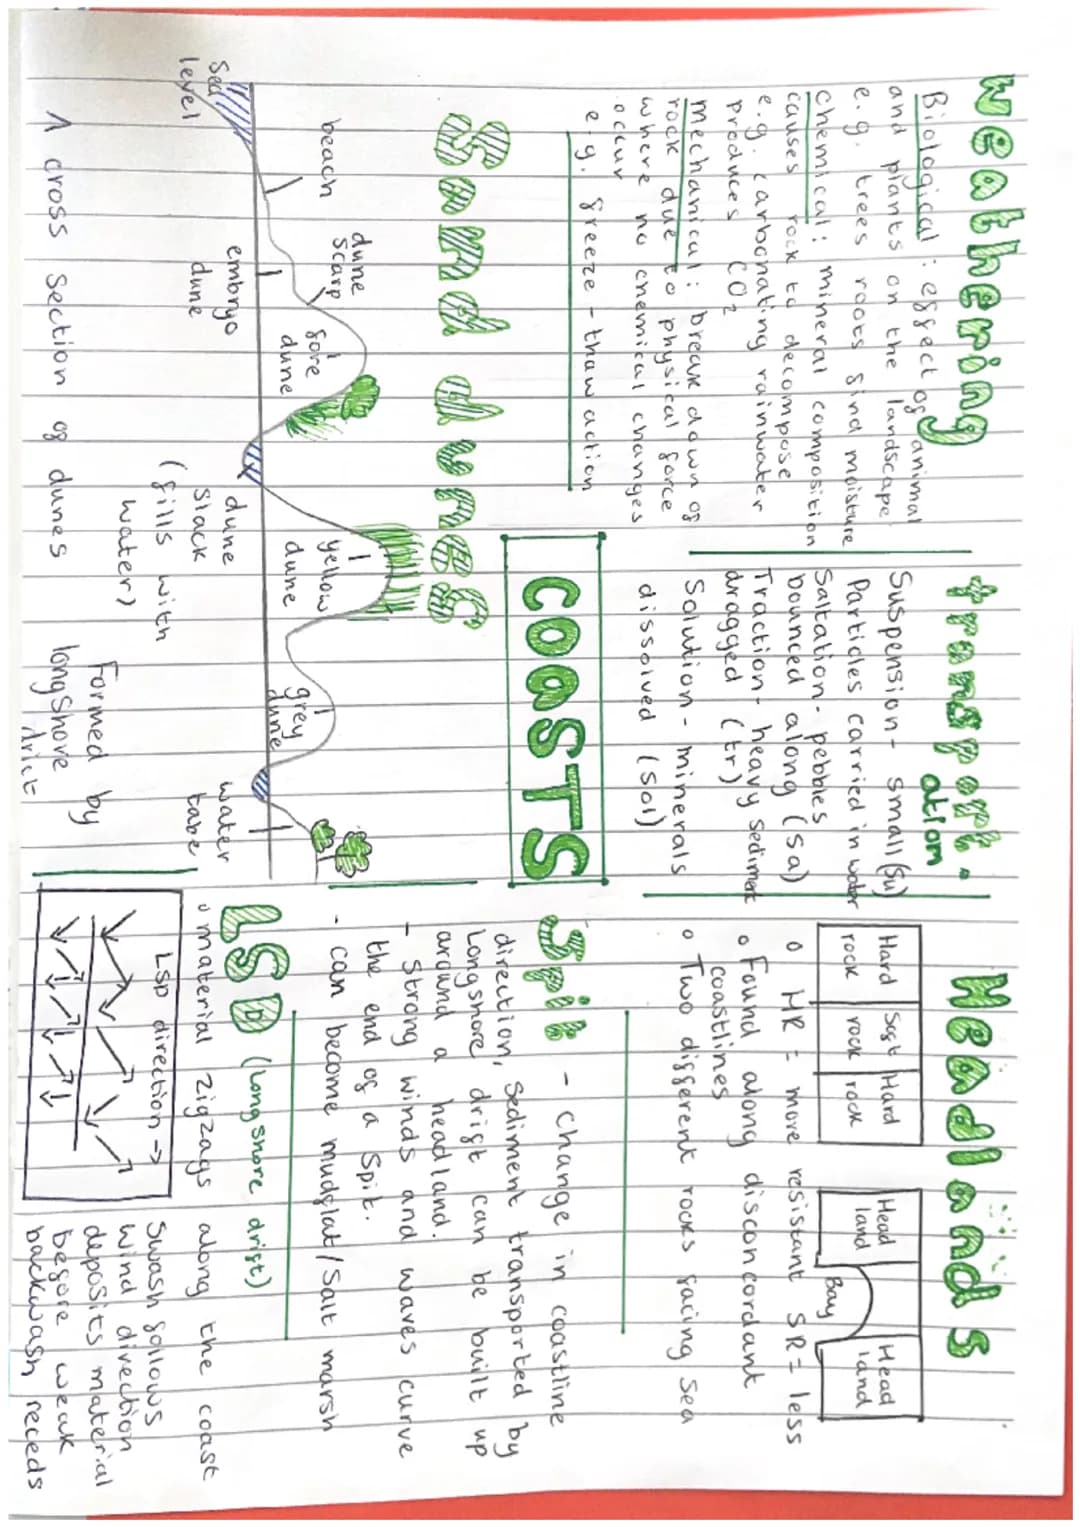 weathering
Biological : effect of animal
and plants on the landscape
e.g. trees roots find moisture
Chemical : mineral composition
causes rock to decompose
e.g. carbonating rainwater
produces CO2
mechanical : break down of
rock due to physical force
where no chemical changes
occur
e.g. freeze-thaw action
transport-
ation
Suspension - small (su)
Particles carried in water
Saltation - pebbles
bounced along (sa)
Traction - heavy sediment
dragged (tr)
Solution - minerals
dissolved (sol)
Headlands
Hard rock
Soft rock
Hard rock
Head land
Bay
Head land
HR = more resistant SR = less
Found along disconcordant
coastlines
Two different rocks facing sea
COASTS
Sand dunes
beach
dune
scarp
fore
dune
yellow
dune
grey
dune
sea
level
embryo
dune
dune
slack
(fills with
water)
water
tabe
A cross section of dunes
Formed by
longshore
drift
Spit - Change in coastline
direction, sediment transported by
Longshore drift can be built up
around a headland.
- Strong winds and waves curve
the end of a spit.
- can become mudflat/salt marsh
LSD (Longshore drift)
material zigzags along the coast
LSD direction →
Swash follows
wind direction
deposits material
before weak
backwash receeds